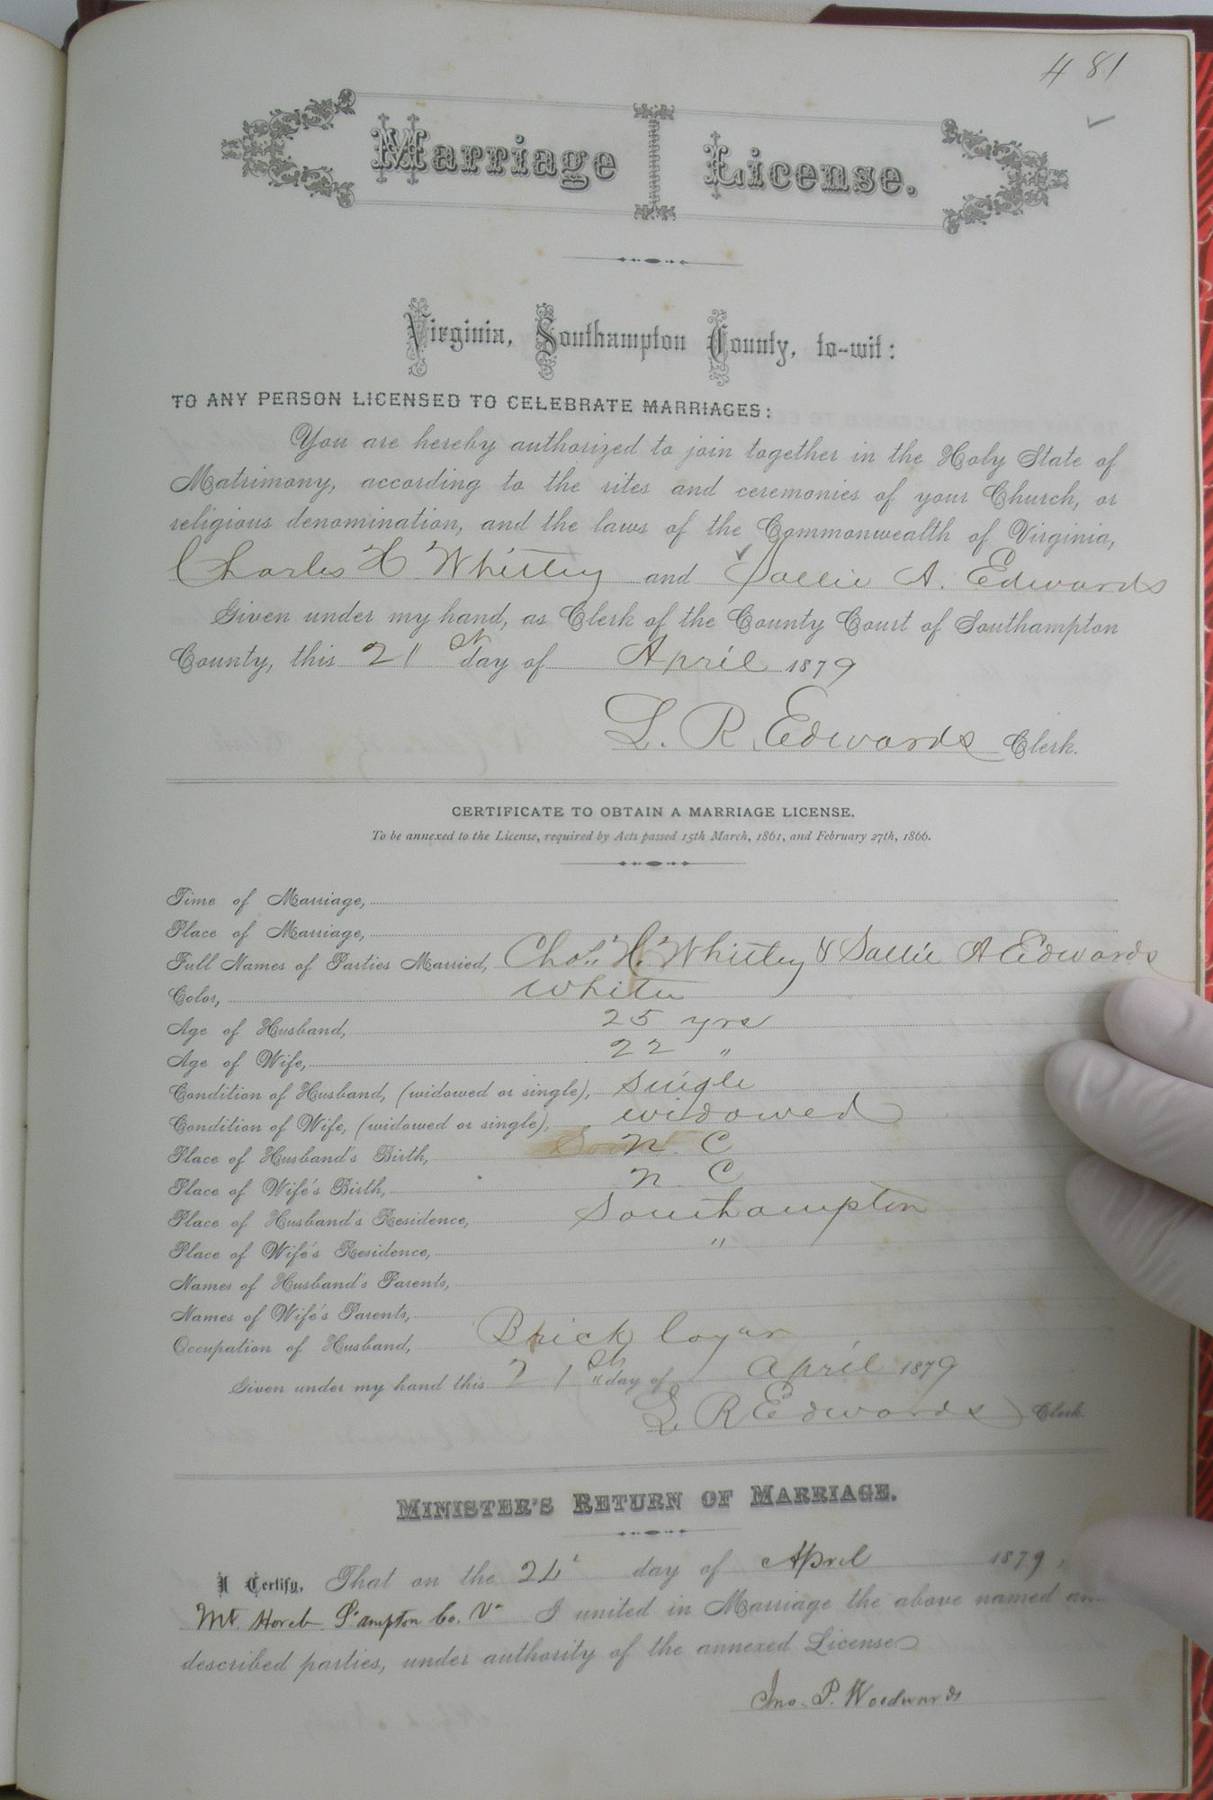 481
Marriage License.
Virginia, Southampton County, to-wit:
TO ANY PERSON LICENSED TO CELEBRATE MARRIAGES:
You are hereby authorized to join together in the Holy State of
Matrimony, according to the rites and ceremonies of your Church, or
religious denomination, and the laws of the Commonwealth of Virginia,
Charles H Whitley and Sallie A. Edwards
Given under my hand, as Clerk of the County Court of Southampton
County, this 21st day of April 1879
L. R. Edwards Clerk.
CERTIFICATE TO OBTAIN A MARRIAGE LICENSE.
To be annexed to the License, required by Acts passed 15th March, 1861, and February 27th, 1866.
Time of Marriage,
Place of Marriage,
Full Names of Parties Married, Chas. H. Whitley & Sallie A Edwards
Color, White
Age of Husband, 25 yrs
Age of Wife, 22 "
Condition of Husband, (widowed or single), Single
Condition of Wife, (widowed or single), widowed
Place of Husband's Birth, N. C
Place of Wife's Birth, N. C
Place of Husband's Residence, Southampton
Place of Wife's Residence, "
Names of Husband's Parents,
Names of Wife's Parents,
Occupation of Husband, Brick layer
Given under my hand this 21st day of April 1879
L. R Edwards Clerk.
MINISTER'S RETURN OF MARRIAGE.
I Certify, That on the day of April 1879,
Mt. Horeb S'ampton Co. Va I united in Marriage the above named an
described parties, under authority of the annexed License
Jno. P. Woodward